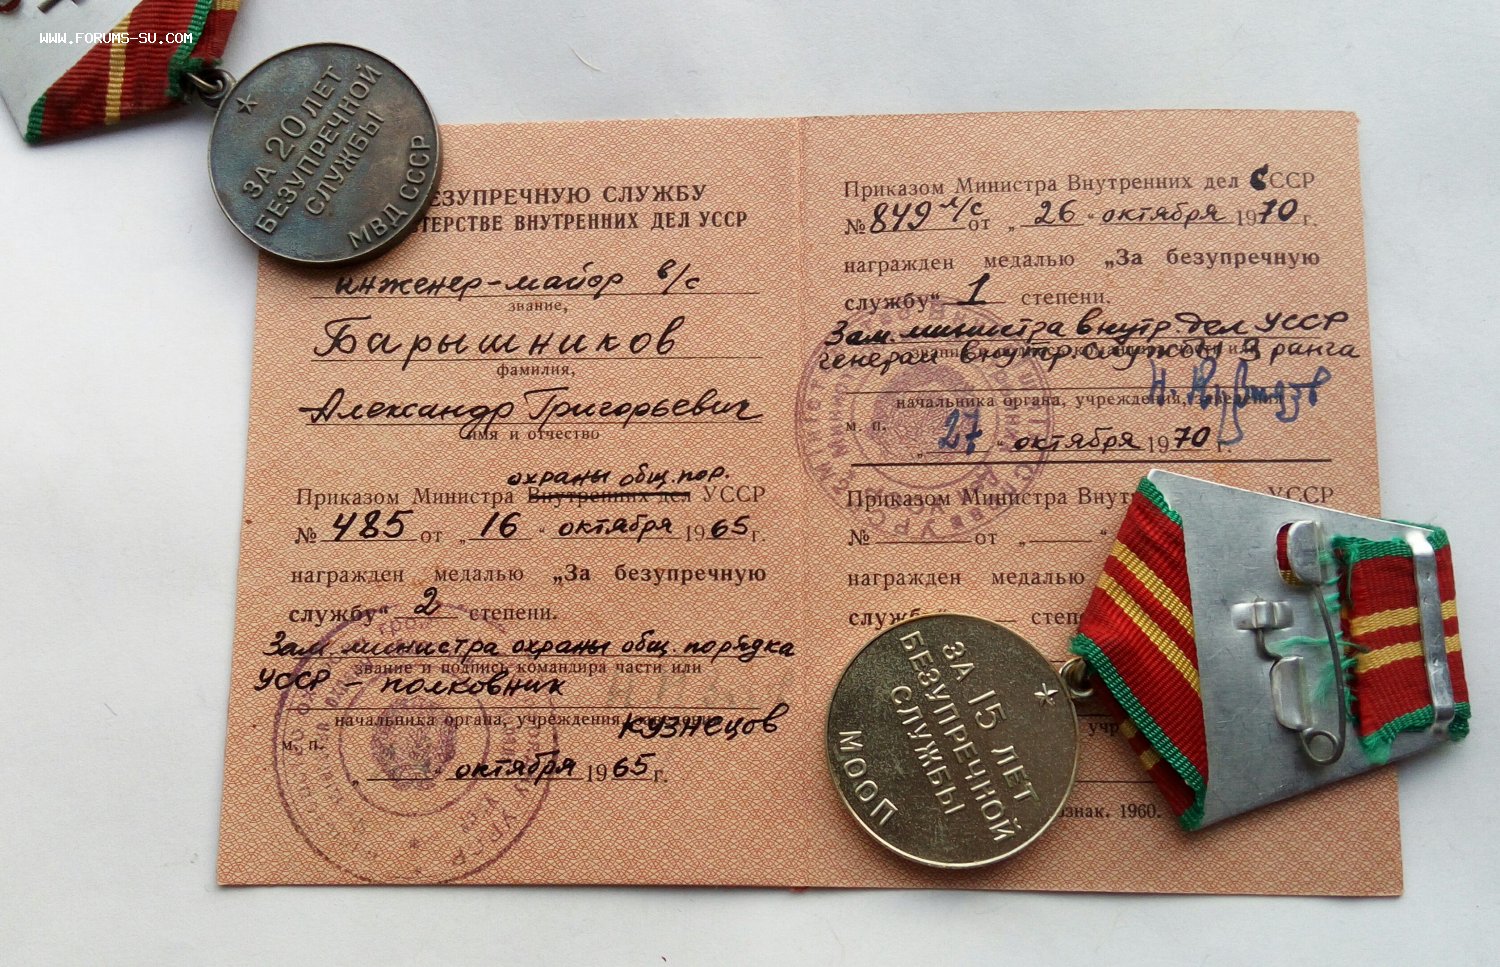 WWW.FORUMS-SU.COM
ЗА 20 ЛЕТ
БЕЗУПРЕЧНОЙ
СЛУЖБЫ
МВД СССР
ЕЗУПРЕЧНУЮ СЛУЖБУ
ТЕРСТВЕ ВНУТРЕННИХ ДЕЛ УССР
инженер-майор в/с
звание,
Барышников
фамилия,
Александр Григорьевич
имя и отчество
охраны общ. пор.
Приказом Министра Внутренних дел УССР
№ 485 от „16“ октября 1965 г.
награжден медалью „За безупречную
службу“ 2 степени.
Зам. министра охраны общ. порядка
звание и подпись командира части или
УССР – полковник
начальника органа, учреждения, заведения
Кузнецов
м. п.
„ “ октября 1965 г.
Приказом Министра Внутренних дел СССР
№ 849 л/с от „26“ октября 1970 г.
награжден медалью „За безупречную
службу“ 1 степени.
Зам. министра внутр. дел УССР
генерал внутр. службы 3 ранга
начальника органа, учреждения, заведения
м. п.
„27“ октября 1970 г.
Приказом Министра Внут УССР
№ от „ “
награжден медалью
службу“ степе
учр
знак. 1960.
ЗА 15 ЛЕТ
БЕЗУПРЕЧНОЙ
СЛУЖБЫ
МООП